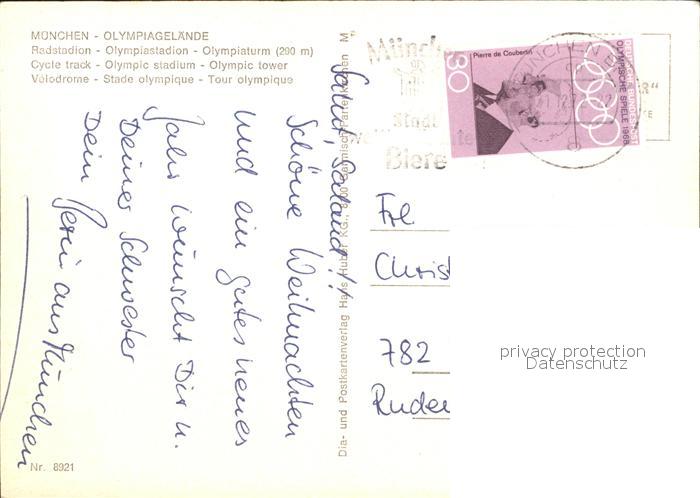 MÜNCHEN - OLYMPIAGELÄNDE
Radstadion - Olympiastadion - Olympiaturm (290 m)
Cycle track - Olympic stadium - Olympic tower
Vélodrome - Stade olympique - Tour olympique
Salut,
Schöne Weihnachten
und ein gutes neues
Jahr wünscht Dir u.
Deiner Schwester
Dein
aus München
Nr. 8921
Dia- und Postkartenverlag Hans Huber KG., 8100 Garmisch-Partenkirchen M
Münch
Stadt
Biere
30
Pierre de Coubertin
DEUTSCHE BUNDESPOST
OLYMPISCHE SPIELE 1968
MÜNCHEN
Frl
Christ
782
Ruden
privacy protection
Datenschutz